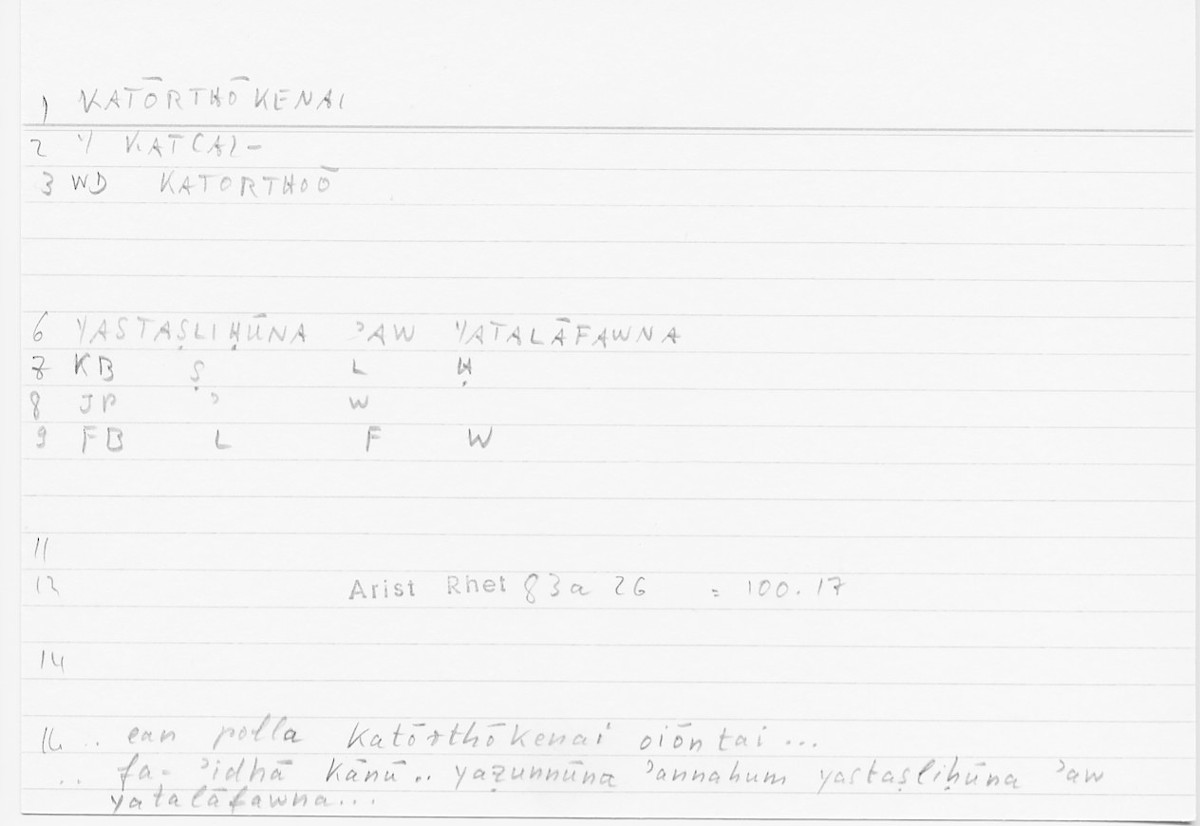 1 KATŌRTHŌKENAI
2 Y KAT(A)-
3 WD KATORTHOŌ
6 YASTAṢLIḤŪNA ʾAW YATALĀFAWNA
7 KB Ṣ L Ḥ
8 JP ʾ W
9 FB L F W
11
12 Arist Rhet 83a 26 = 100.17
14
16 .. ean polla katōrthōkenai oiōntai ...
.. fa- ʾidhā kānū .. yaẓunnūna ʾannahum yastaṣliḥūna ʾaw
yatalāfawna...